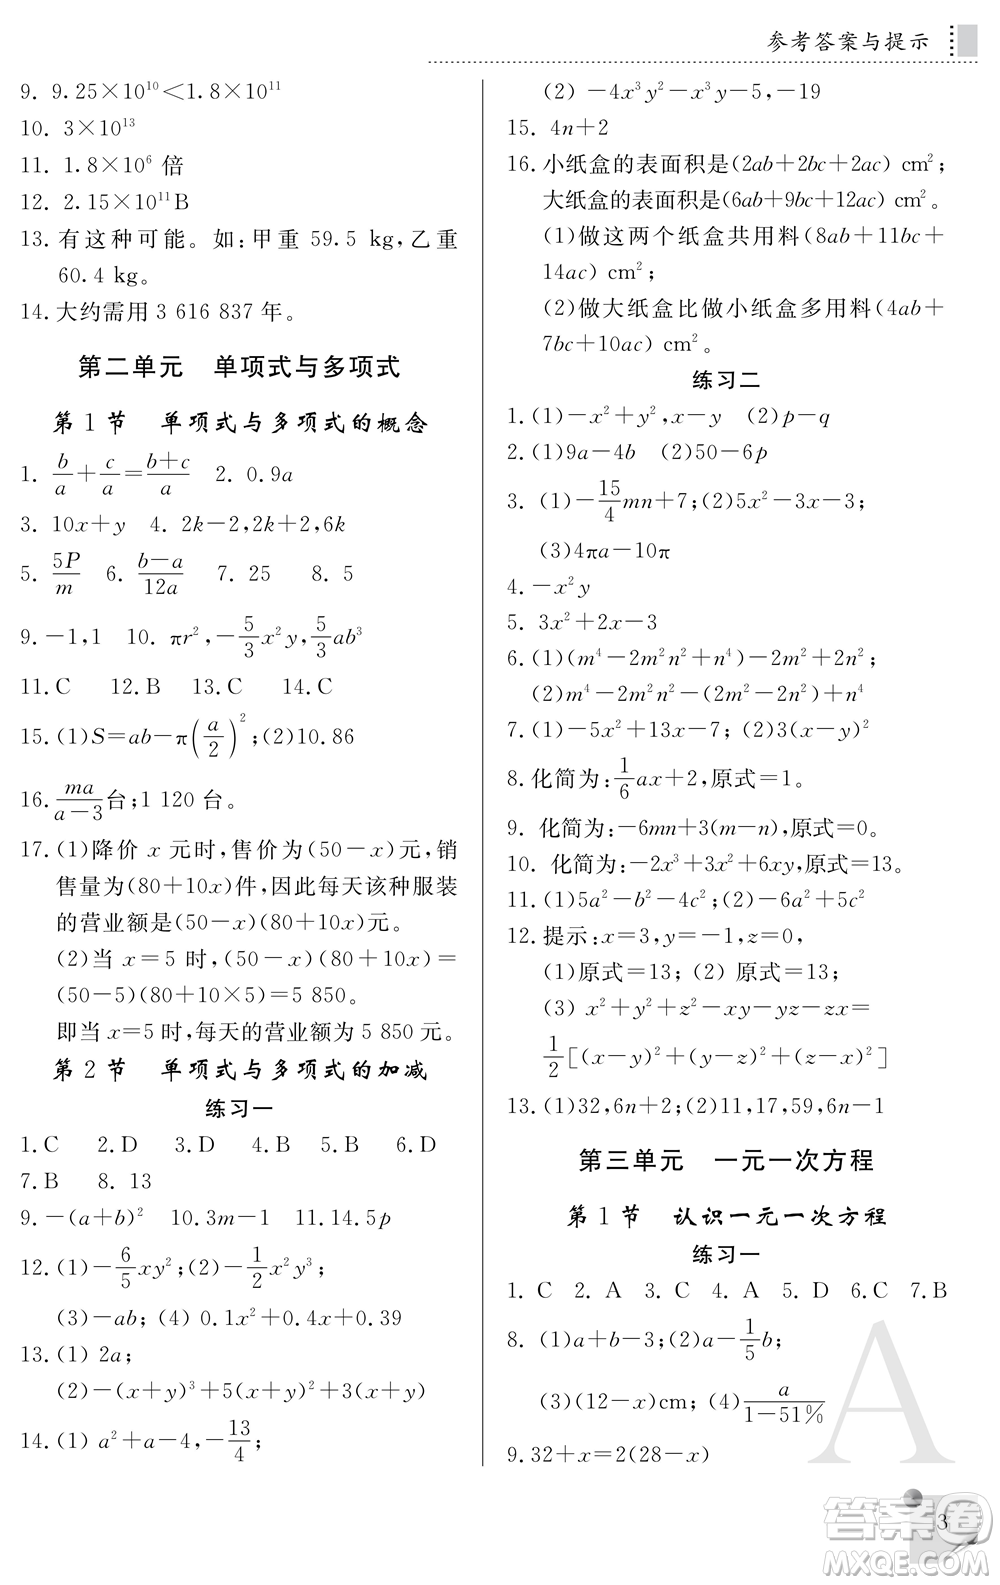 参考答案与提示
9. 9.25×10¹⁰<1.8×10¹¹
10. 3×10¹³
11. 1.8×10⁶ 倍
12. 2.15×10¹¹B
13. 有这种可能。如:甲重 59.5 kg,乙重
60.4 kg。
14.大约需用 3 616 837 年。
第二单元 单项式与多项式
第 1 节 单项式与多项式的概念
1. b/a+c/a=(b+c)/a 2. 0.9a
3. 10x+y 4. 2k-2,2k+2,6k
5. 5P/m 6. (b-a)/12a 7. 25 8. 5
9.-1,1 10. πr²,-5/3x²y,5/3ab³
11.C 12.B 13.C 14.C
15.(1)S=ab-π(a/2)²;(2)10.86
16. ma/(a-3)台;1 120 台。
17.(1)降价 x 元时,售价为(50-x)元,销
售量为(80+10x)件,因此每天该种服装
的营业额是(50-x)(80+10x)元。
(2)当 x=5 时,(50-x)(80+10x)=
(50-5)(80+10×5)=5 850。
即当 x=5 时,每天的营业额为 5 850 元。
第 2 节 单项式与多项式的加减
练习一
1.C 2.D 3.D 4.B 5.B 6.D
7.B 8. 13
9.-(a+b)² 10.3m-1 11.14.5p
12.(1)-6/5xy²;(2)-1/2x²y³;
(3)-ab;(4) 0.1x²+0.4x+0.39
13.(1) 2a;
(2)-(x+y)³+5(x+y)²+3(x+y)
14.(1) a²+a-4,-13/4;
(2) -4x³y²-x³y-5,-19
15. 4n+2
16.小纸盒的表面积是(2ab+2bc+2ac) cm²;
大纸盒的表面积是(6ab+9bc+12ac) cm²。
(1)做这两个纸盒共用料(8ab+11bc+
14ac) cm²;
(2)做大纸盒比做小纸盒多用料(4ab+
7bc+10ac) cm²。
练习二
1.(1)-x²+y²,x-y (2)p-q
2.(1)9a-4b (2)50-6p
3. (1)-15/4mn+7;(2)5x²-3x-3;
(3)4πa-10π
4.-x²y
5. 3x²+2x-3
6.(1)(m⁴-2m²n²+n⁴)-2m²+2n²;
(2)m⁴-2m²-(2m²n²-2n²)+n⁴
7.(1)-5x²+13x-7; (2)3(x-y)²
8.化简为:1/6ax+2,原式=1。
9. 化简为:-6mn+3(m-n),原式=0。
10. 化简为:-2x³+3x²+6xy,原式=13。
11.(1)5a²-b²-4c²;(2)-6a²+5c²
12.提示:x=3,y=-1,z=0,
(1)原式=13;(2) 原式=13;
(3) x²+y²+z²-xy-yz-zx=
1/2[(x-y)²+(y-z)²+(z-x)²]
13.(1)32,6n+2;(2)11,17,59,6n-1
第三单元 一元一次方程
第 1 节 认识一元一次方程
练习一
1. C 2. A 3.C 4. A 5. D 6.C 7.B
8. (1)a+b-3;(2)a-1/5b;
(3)(12-x)cm;(4)a/(1-51%)
9.32+x=2(28-x)
A
3
答案圈
MXQE.COM